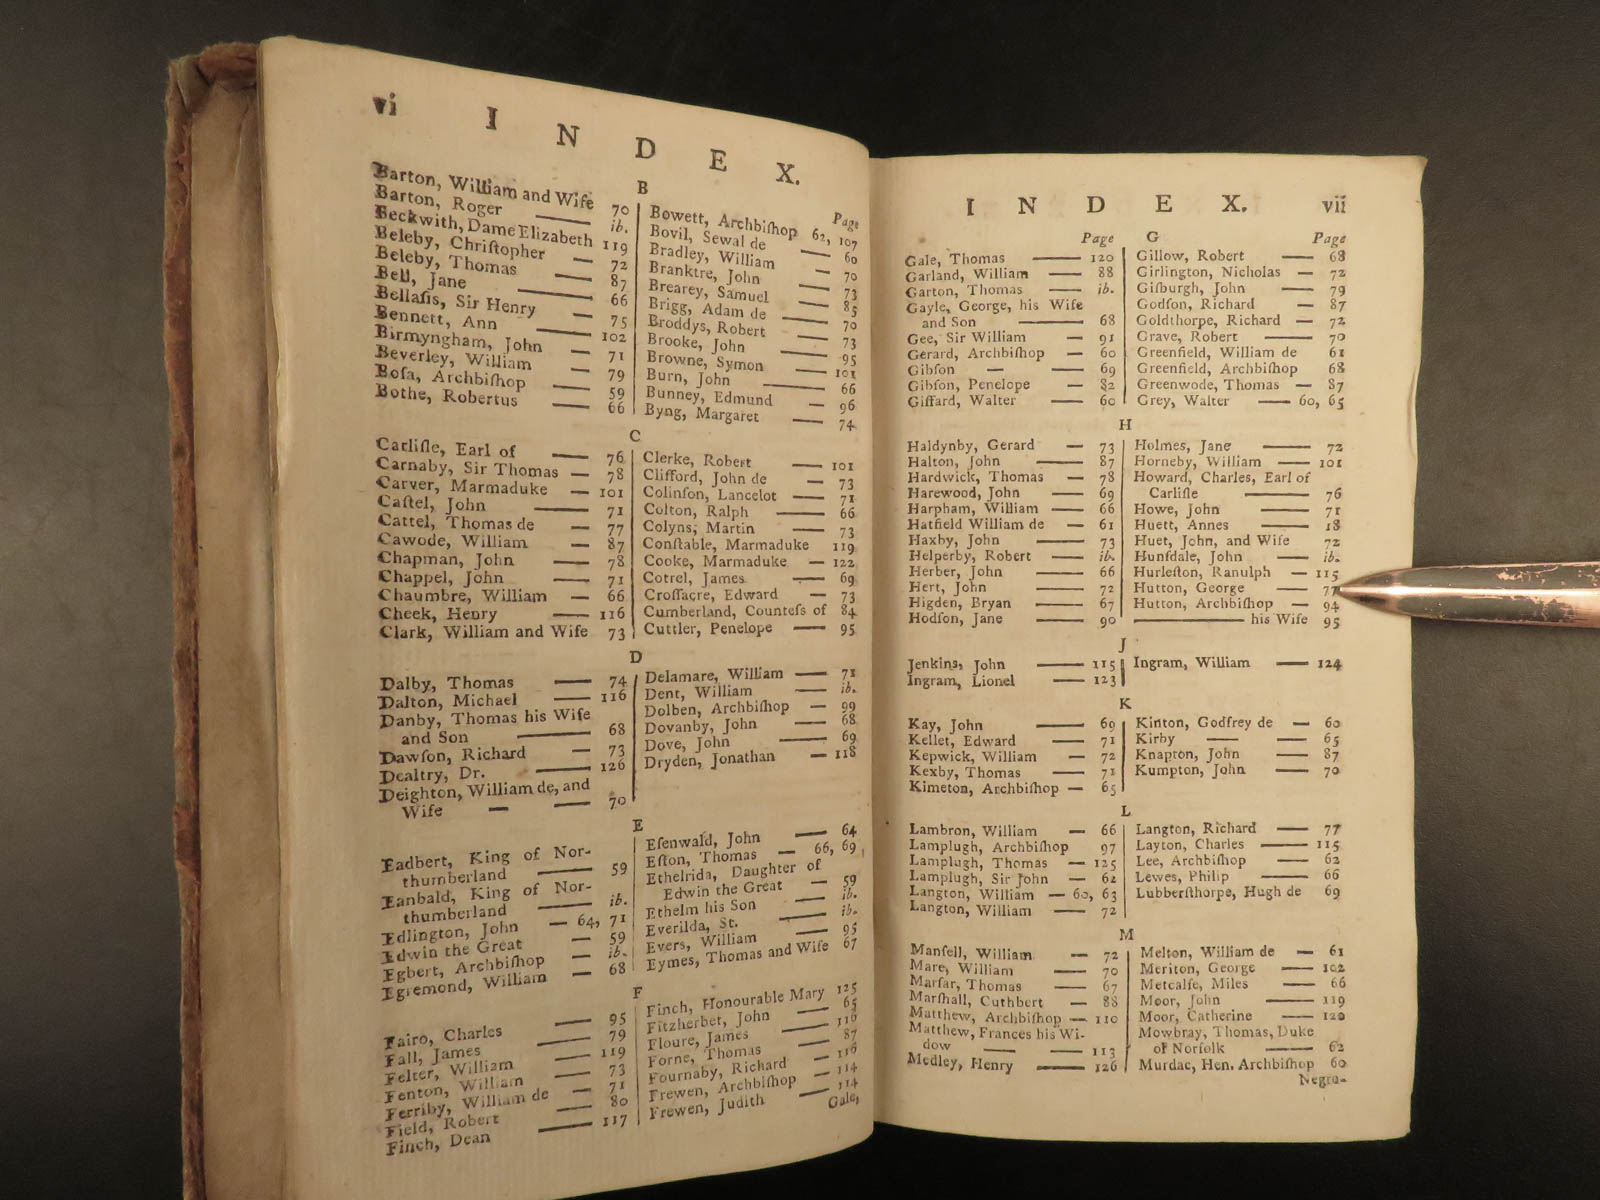 vi
I N D E X.
B
Barton, William and Wife 70
Barton, Roger ib.
Beckwith, Dame Elizabeth 119
Beleby, Christopher 72
Beleby, Thomas 87
Bell, Jane 66
Bellasis, Sir Henry 75
Bennett, Ann 102
Birmyngham, John 71
Beverley, William 79
Bosa, Archbishop 59
Bothe, Robertus 66
Page
Bowett, Archbishop 62, 107
Bovil, Sewal de 60
Bradley, William 70
Branktre, John 73
Brearey, Samuel 85
Brigg, Adam de 70
Broddys, Robert 73
Brooke, John 95
Browne, Symon 101
Burn, John 66
Bunney, Edmund 96
Byng, Margaret 74
C
Carlisle, Earl of 76
Carnaby, Sir Thomas 78
Carver, Marmaduke 101
Castel, John 71
Cattel, Thomas de 77
Cawode, William 87
Chapman, John 78
Chappel, John 71
Chaumbre, William 66
Cheek, Henry 116
Clark, William and Wife 73
Clerke, Robert 101
Clifford, John de 73
Colinson, Lancelot 71
Colton, Ralph 66
Colyns, Martin 73
Constable, Marmaduke 119
Cooke, Marmaduke 122
Cotrel, James 69
Crossacre, Edward 73
Cumberland, Countess of 84
Cuttler, Penelope 95
D
Dalby, Thomas 74
Dalton, Michael 116
Danby, Thomas his Wife
and Son 68
Dawson, Richard 73
Dealtry, Dr. 126
Deighton, William de, and
Wife 70
Delamare, William 71
Dent, William ib.
Dolben, Archbishop 99
Dovanby, John 68
Dove, John 69
Dryden, Jonathan 118
E
Eadbert, King of Nor-
thumberland 59
Eanbald, King of Nor-
thumberland ib.
Edlington, John 64, 71
Edwin the Great 59
Egbert, Archbishop ib.
Egremond, William 68
Esenwald, John 64
Eston, Thomas 66, 69
Ethelrida, Daughter of
Edwin the Great 59
Ethelm his Son ib.
Everilda, St. ib.
Evers, William 95
Eymes, Thomas and Wife 67
F
Fairo, Charles 95
Fall, James 79
Felter, William 119
Fenton, William 73
Ferriby, William de 71
Field, Robert 80
Finch, Dean 117
Finch, Honourable Mary 125
Fitzherbet, John 65
Floure, James 116
Forne, Thomas 87
Fournaby, Richard 116
Frewen, Archbishop 114
Frewen, Judith 114
Gale,
I N D E X. vii
G
Page
Gale, Thomas 120
Garland, William 88
Garton, Thomas ib.
Gayle, George, his Wife
and Son 68
Gee, Sir William 91
Gerard, Archbishop 60
Gibson 69
Gibson, Penelope 82
Giffard, Walter 60
Page
Gillow, Robert 68
Girlington, Nicholas 72
Gisburgh, John 79
Godson, Richard 87
Goldthorpe, Richard 72
Grave, Robert 70
Greenfield, William de 61
Greenfield, Archbishop 68
Greenwode, Thomas 87
Grey, Walter 60, 65
H
Haldynby, Gerard 73
Halton, John 87
Hardwick, Thomas 78
Harewood, John 69
Harpham, William 66
Hatfield William de 61
Haxby, John 73
Helperby, Robert ib.
Herber, John 66
Hert, John 72
Higden, Bryan 67
Hodson, Jane 90
Holmes, Jane 72
Horneby, William 101
Howard, Charles, Earl of
Carlisle 76
Howe, John 71
Huett, Annes 18
Huet, John, and Wife 72
Hunsdale, John ib.
Hurleston, Ranulph 115
Hutton, George 77
Hutton, Archbishop 94
his Wife 95
J
Jenkins, John 115
Ingram, Lionel 123
Ingram, William 124
K
Kay, John 69
Kellet, Edward 71
Kepwick, William 72
Kexby, Thomas 71
Kimeton, Archbishop 65
Kinton, Godfrey de 60
Kirby 65
Knapton, John 87
Kumpton, John 70
L
Lambron, William 66
Lamplugh, Archbishop 97
Lamplugh, Thomas 125
Lamplugh, Sir John 62
Langton, William 60, 63
Langton, William 72
Langton, Richard 77
Layton, Charles 115
Lee, Archbishop 62
Lewes, Philip 66
Lubbersthorpe, Hugh de 69
M
Mansell, William 72
Mare, William 70
Marsar, Thomas 67
Marshall, Cuthbert 88
Matthew, Archbishop 110
Matthew, Frances his Wi-
dow 113
Medley, Henry 126
Melton, William de 61
Meriton, George 102
Metcalfe, Miles 66
Moor, John 119
Moor, Catherine 120
Mowbray, Thomas, Duke
of Norfolk 62
Murdac, Hen. Archbishop 60
Negro-